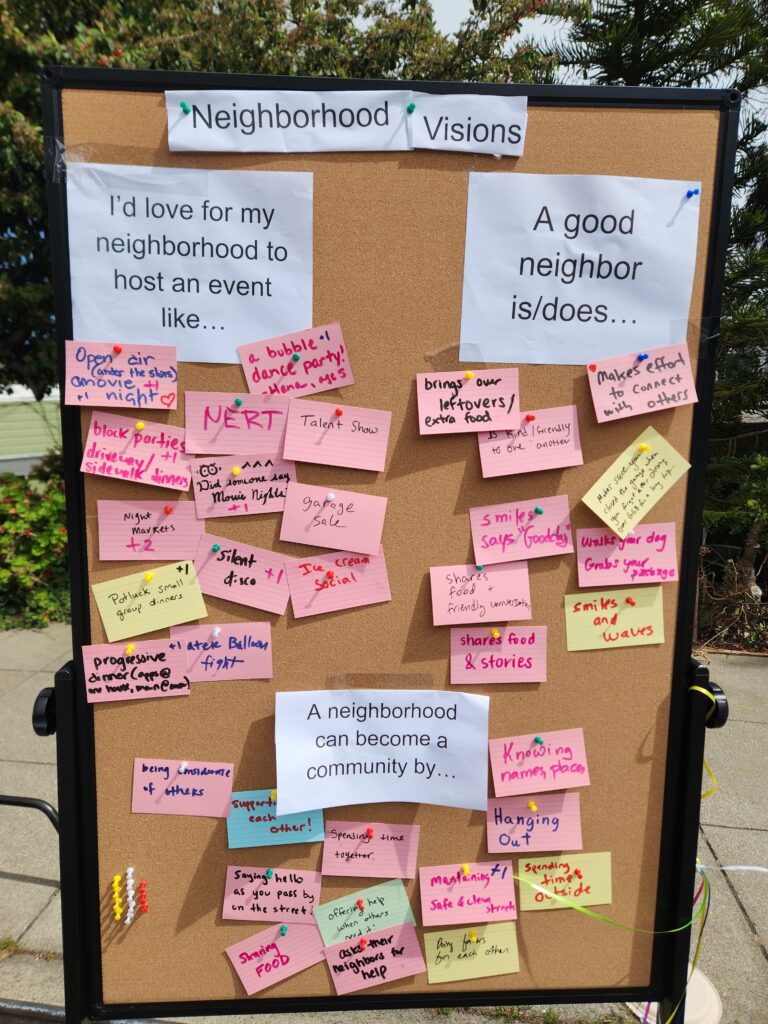 Neighborhood Visions
I'd love for my
neighborhood to
host an event
like...
Open air
(under the stars)
movie +1
+1 night
a bubble +1
dance party!
NERT
Talent Show
block parties
driveway/ +1
sidewalk dinners
Did someone say
Movie Nights?
+1
garage
sale
Night
Markets
+2
Silent
disco +1
Ice cream
social
+1
Potluck small
group dinners
+1
fight
Balloon
progressive
dinner (apps@
one house, main@
A good
neighbor
is/does...
brings over
leftovers/
extra food
Makes effort
to connect
with others
Is kind/friendly
to one another
Makes sure you
closed the garage when
smiles
says "Goodday"
Walks your dog
Grabs your
package
shares
food +
friendly
smiles
and
waves
shares food
& stories
A neighborhood
can become a
community by...
being considerate
of others
Supporting
each
other!
Spending time
together
Knowing
names, places
Hanging
Out
Saying hello
as you pass by
on the street!
offering help
when others
need it!
mantaining +1
Safe & clean
streets
Spending
time
outside
Sharing
FOOD
asks their
neighbors for
help
Doing favors
for each other